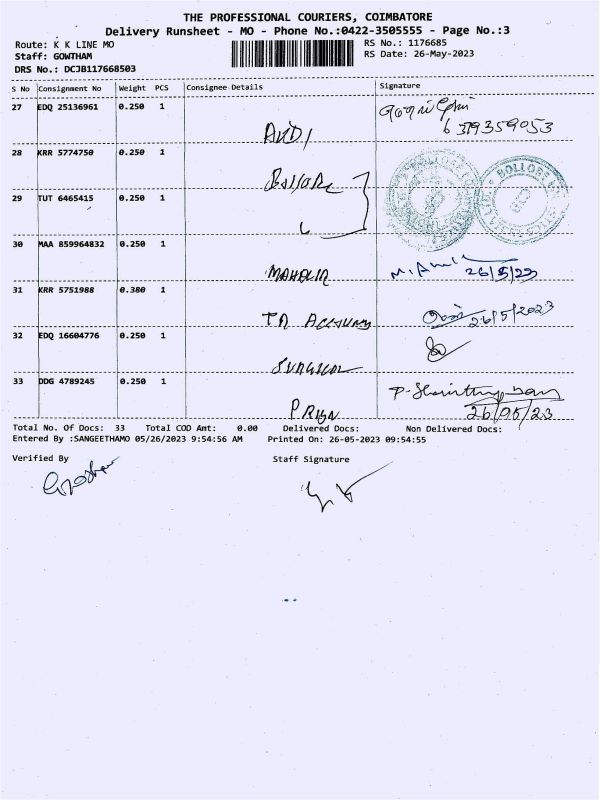 THE PROFESSIONAL COURIERS, COIMBATORE
Delivery Runsheet - MO - Phone No.:0422-3505555 - Page No.:3
Route: K K LINE MO
RS No.: 1176685
Staff: GOWTHAM
RS Date: 26-May-2023
DRS No.: DCJB117668503
S No Consignment No Weight PCS Consignee Details Signature
27 EDQ 25136961 0.250 1
6379359053
28 KRR 5774750 0.250 1
BOLLORE
29 TUT 6465415 0.250 1
30 MAA 859964832 0.250 1
26/5/23
31 KRR 5751988 0.380 1
26/5/2023
32 EDQ 16604776 0.250 1
SURGICAL
33 DDG 4789245 0.250 1
26/05/23
Total No. Of Docs: 33 Total COD Amt: 0.00 Delivered Docs: Non Delivered Docs:
Entered By :SANGEETHAMO 05/26/2023 9:54:56 AM Printed On: 26-05-2023 09:54:55
Verified By Staff Signature